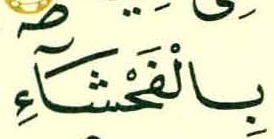 بِالْفَحْشَآءِ